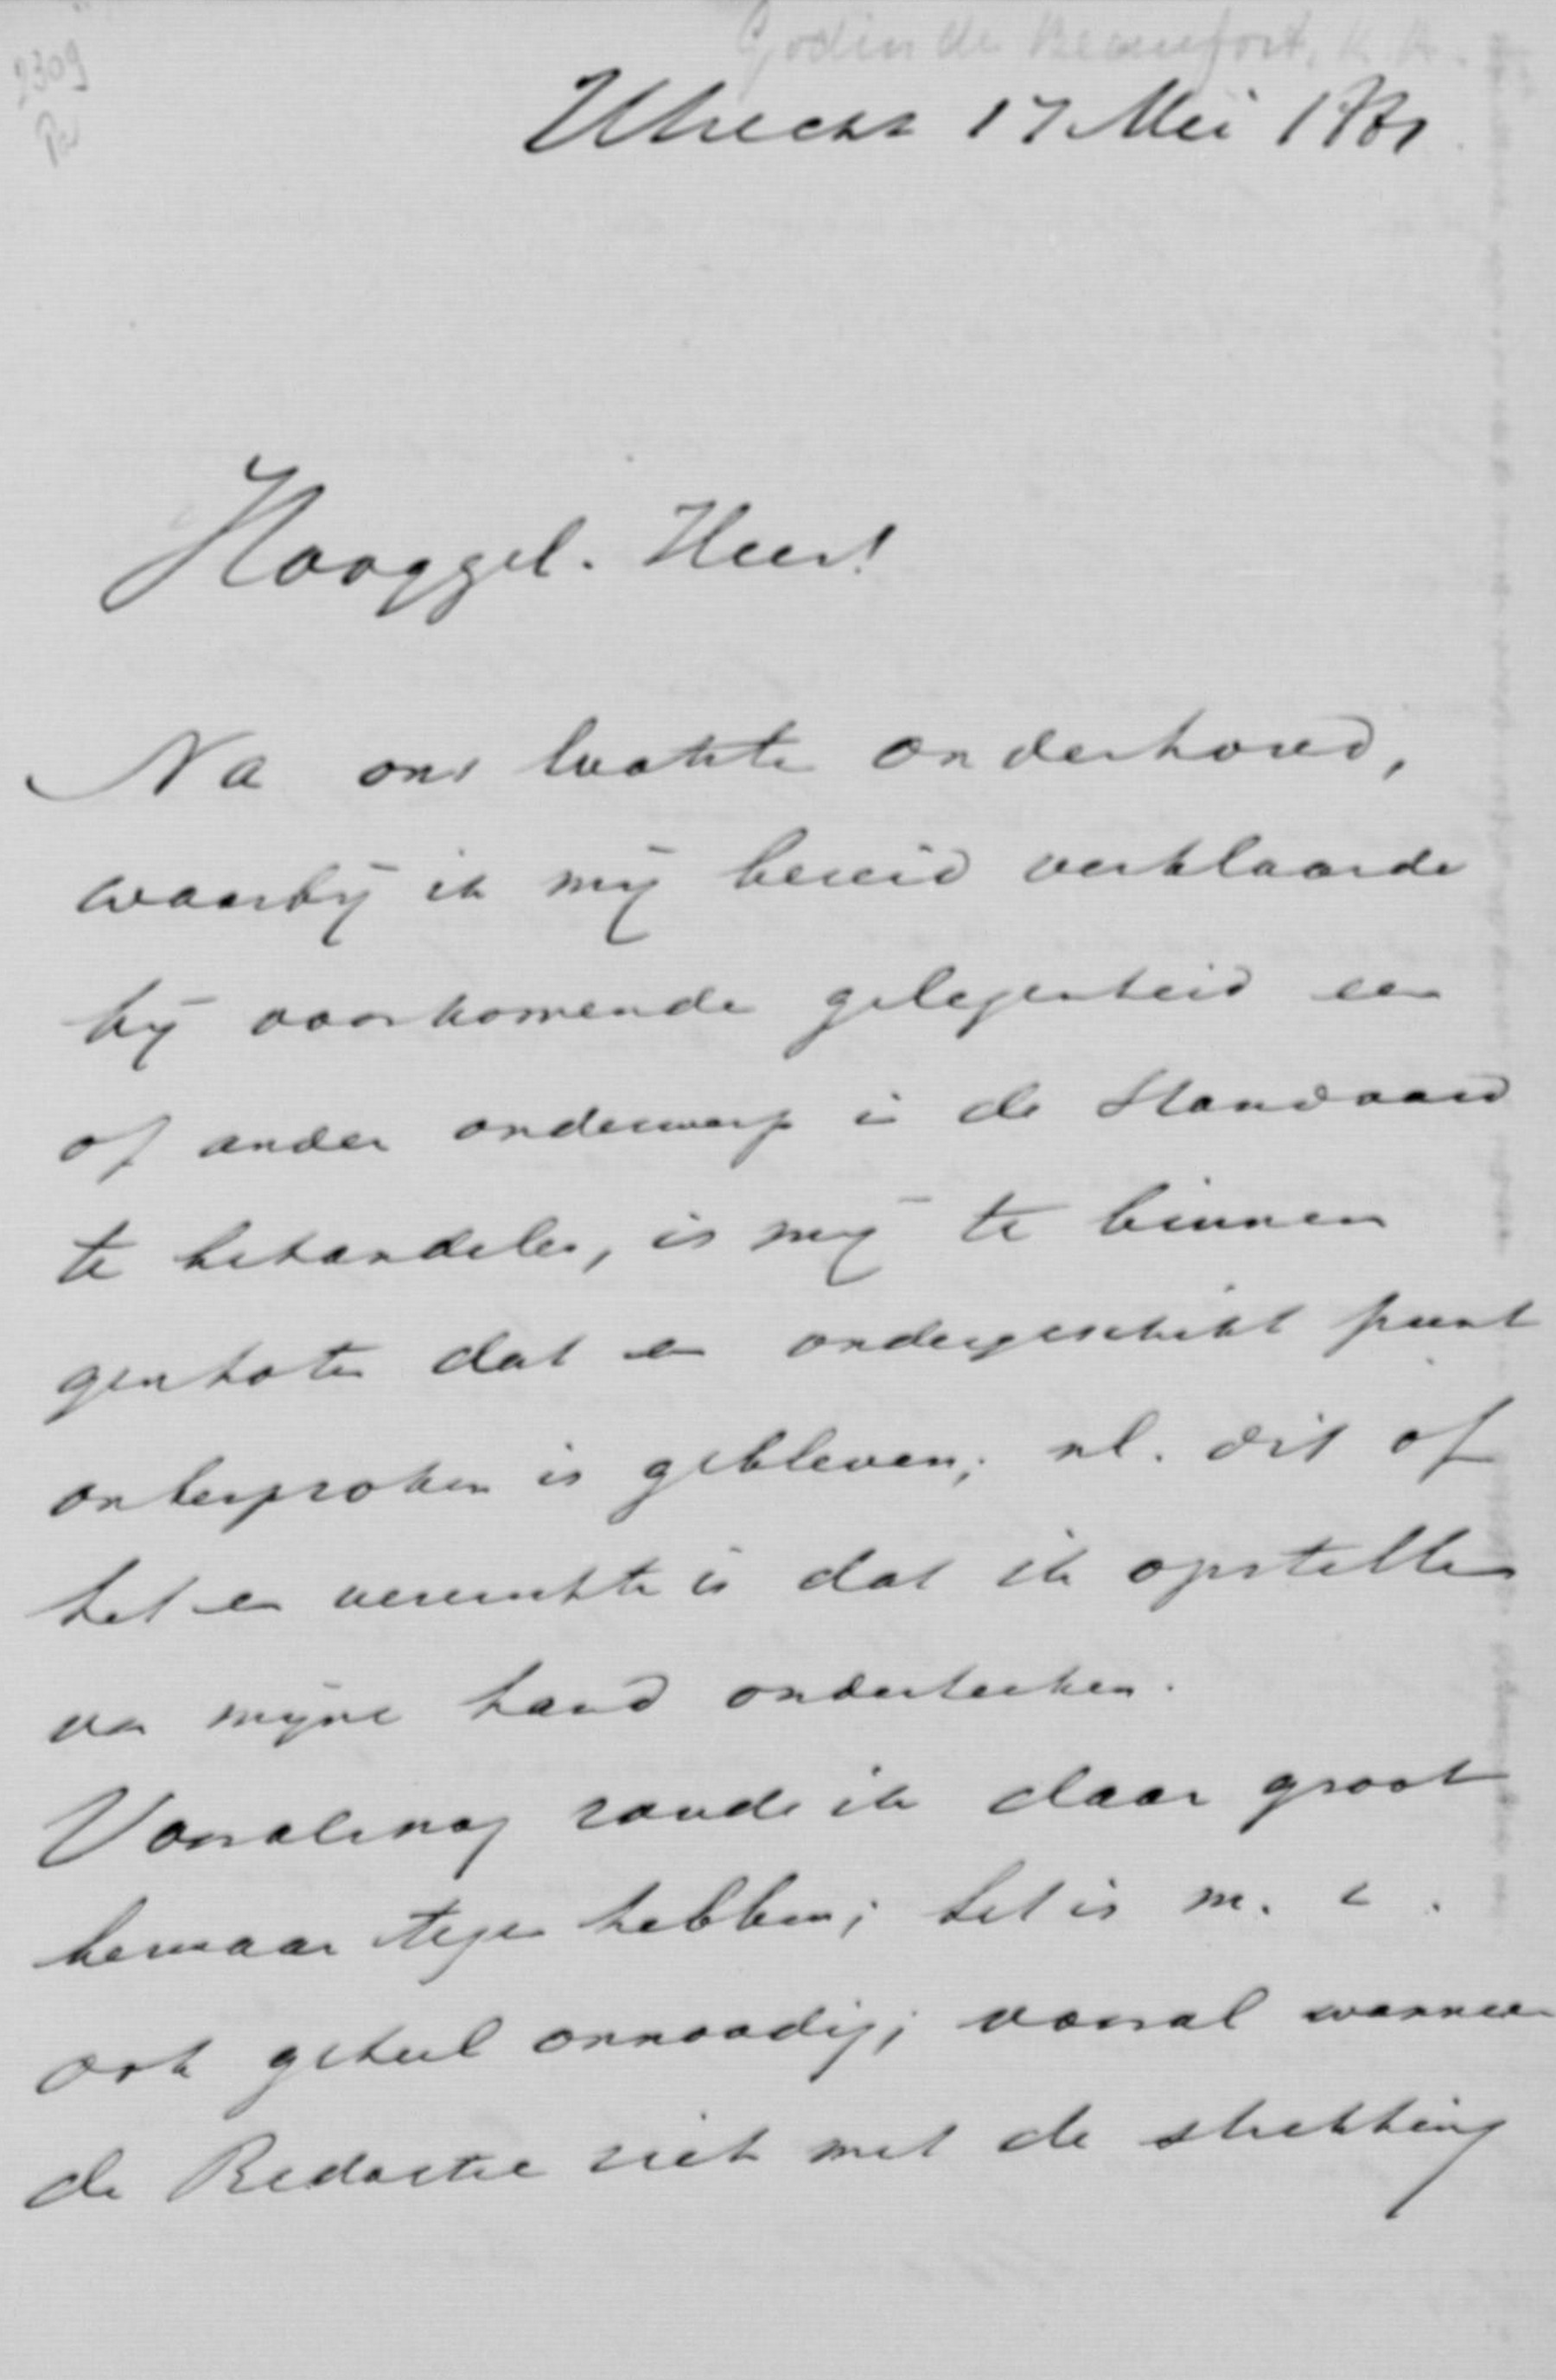 Godin de Beaufort, K. A.
2309
Utrecht 17 Mei 1881
Hooggel. Heer!
Na ons laatste onderhoud,
waarbij ik mij bereid verklaarde
bij voorkomende gelegenheid een
of ander onderwerp in de Standaard
te behandelen, is mij te binnen
geschoten dat een ondergeschikt punt
onbesproken is gebleven; nl. dit of
het een vereischte is dat ik opstellen
van mijne hand onderteeken.
Vooralsnog zoude ik daar groot
bezwaar tegen hebben; het is m. i.
ook geheel onnoodig; vooral wanneer
de Redactie zich met de strekking